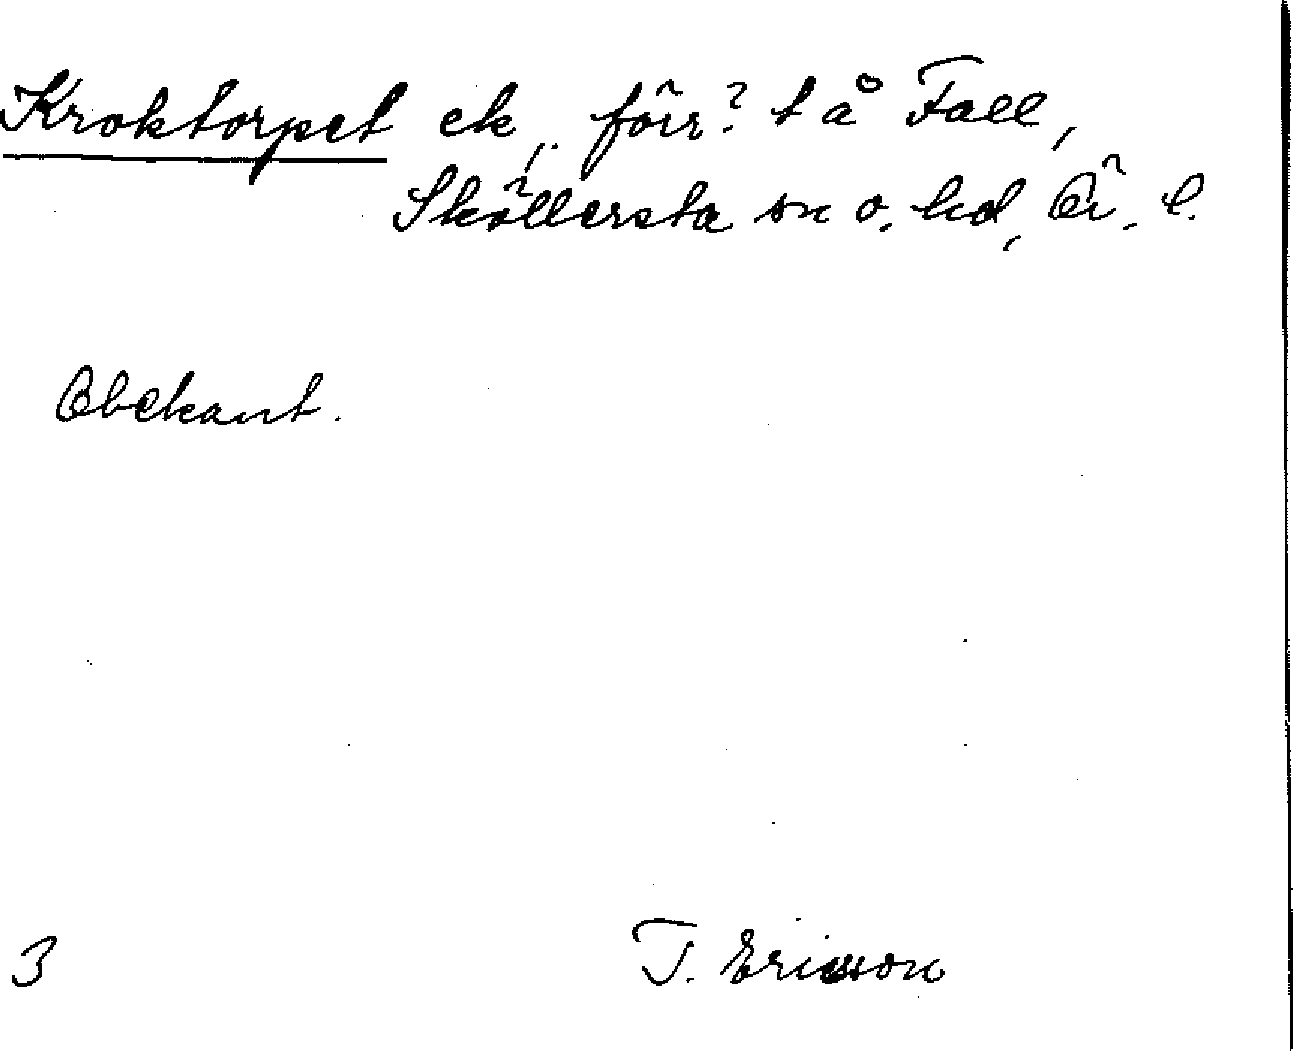 Kroktorpet ek, förr? t å Fall,
Sköllersta sn o. hd, Ör. l.
Obekant.
3
T. Ericsson